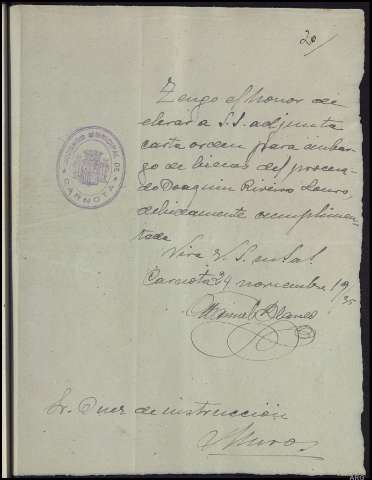 20
Tengo el honor de
elevar a S.S. adjunta
carta orden para embar-
go de bienes del procesa-
do Joaquin Riveiro Louro,
debidamente cumplimen-
tada
Viva V. S. m.
Carnota 24 noviembre 1935
Manuel Blanco
Sr. Juez de instrucción
Muros
JUZGADO MUNICIPAL DE
CARNOTA
ARG